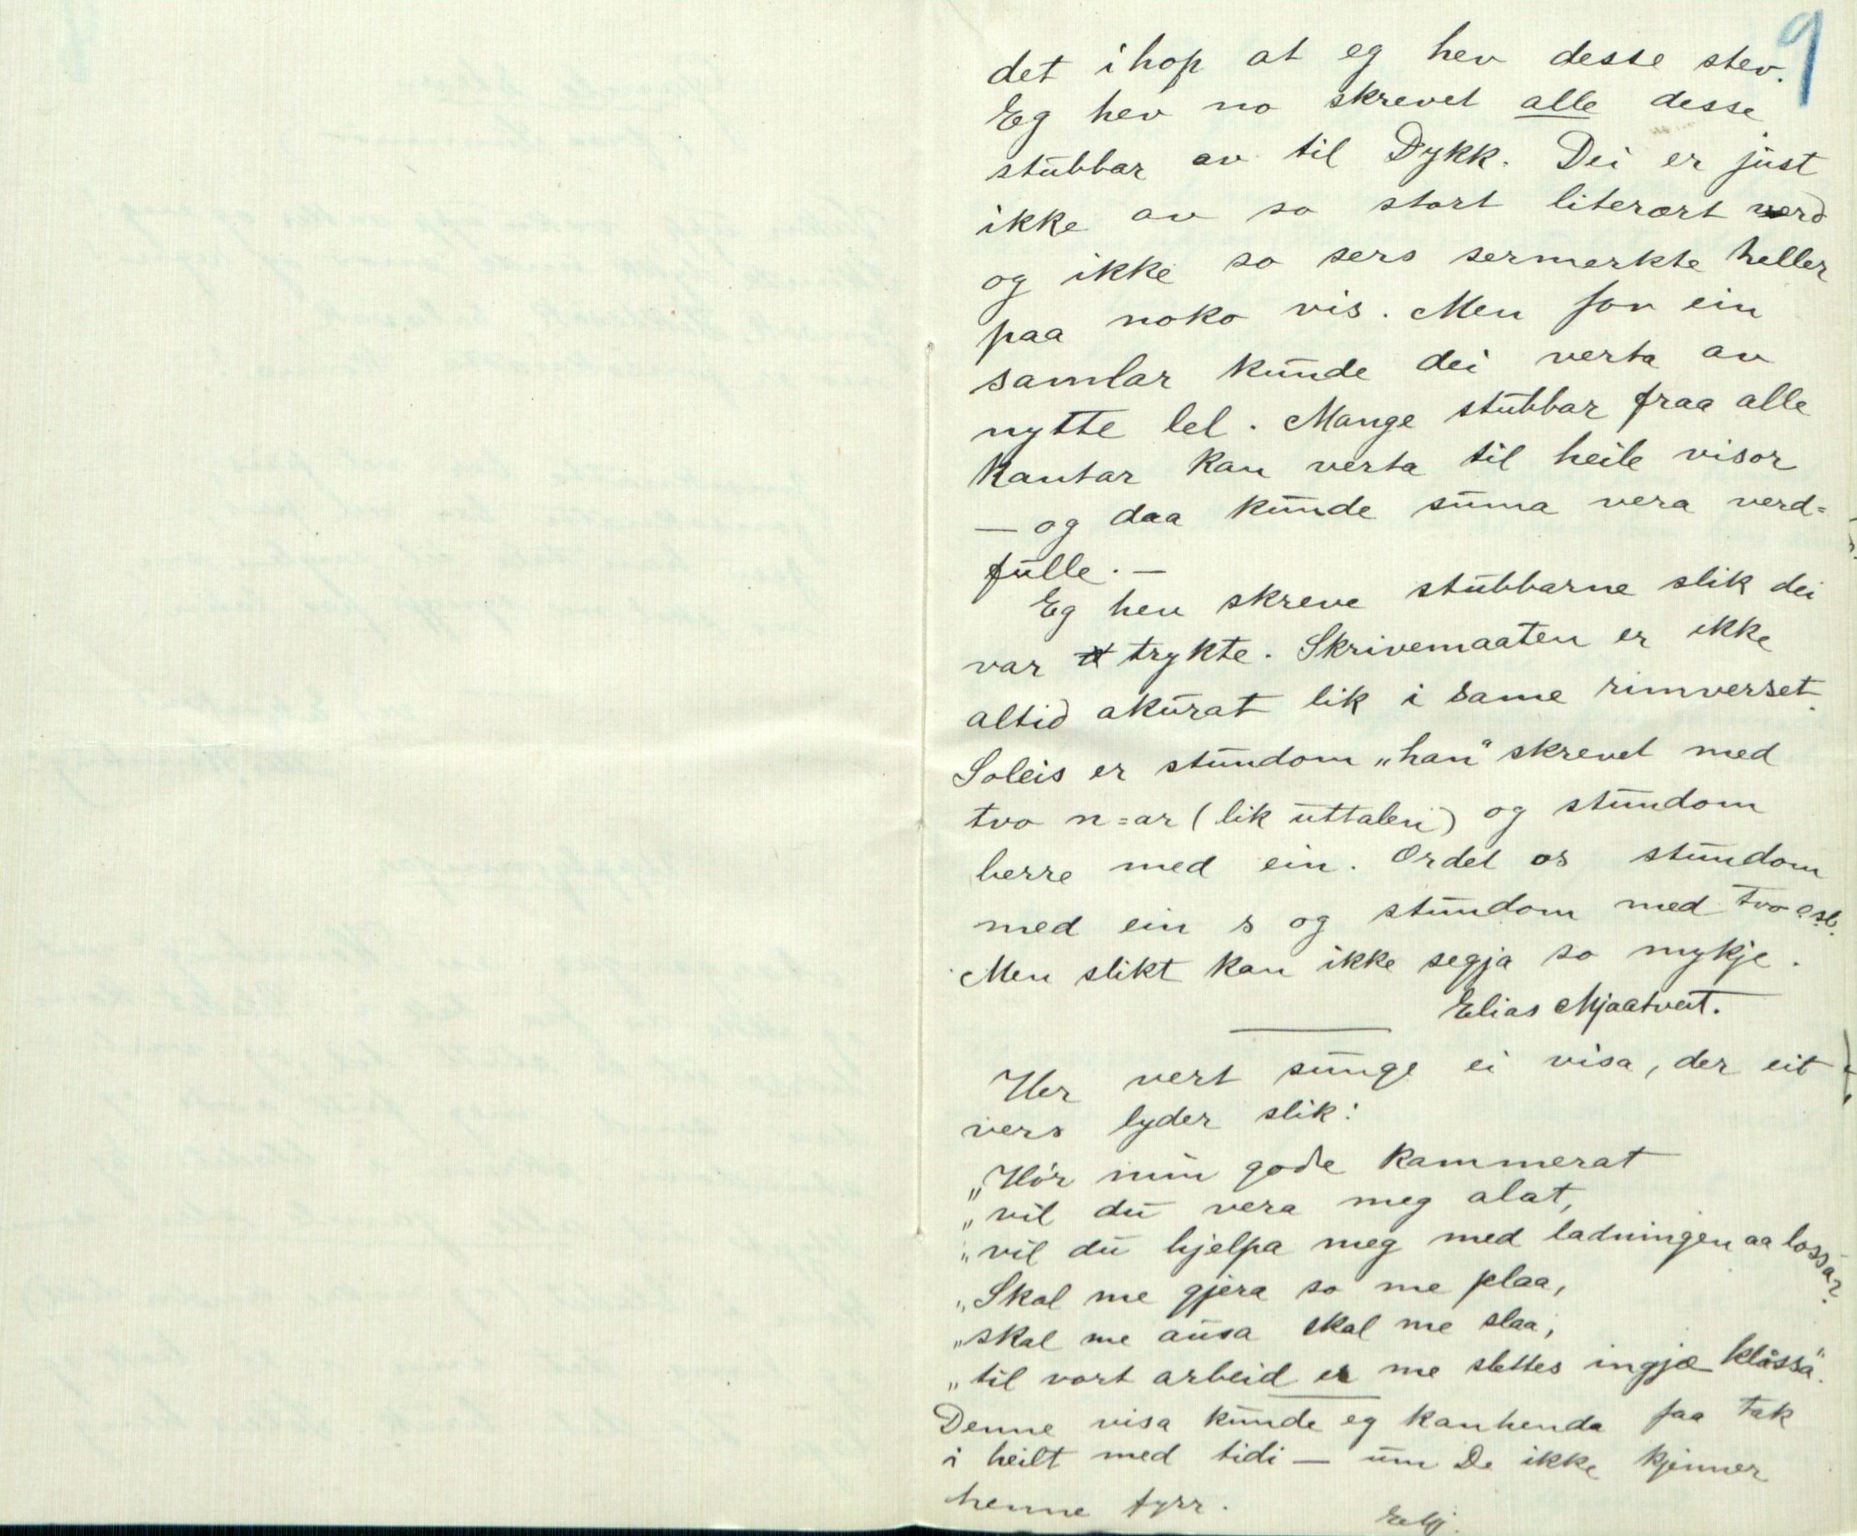 9
det ihop at eg hev desse stev.
Eg hev no skrevet alle desse
stubbar av til Dykk. Dei er just
ikke av so stort literært verd
og ikke so sers sermerkte heller
paa noko vis. Men for ein
samlar kunde dei verta av
nytte lel. Mange stubbar fraa alle
kantar kan verta til heile visor
— og daa kunde suma vera verd=
fulle. —
Eg hev skreve stubbarne slik dei
var trykte. Skrivemaaten er ikke
altid akurat lik i same rimverset.
Soleis er stundom „han" skrevet med
tvo n=ar (lik uttalen) og stundom
berre med ein. Ordet os stundom
med ein s og stundom med tvo osb.
Men slikt kan ikke segja so mykje.
Elias Mjaatveit.
Her vert sunge ei visa, der eit
vers lyder slik:
„Hör min gode kammerat
„vil du vera meg alat,
„vil du hjelpa meg med ladningen aa lossa?
„Skal me gjera so me plaa,
„skal me ausa skal me slaa,
„til vort arbeid er me slettes ingjæ klåssa".
Denne visa kunde eg kanhenda faa tak
i heilt med tidi — um De ikke kjenner
henne fyrr.